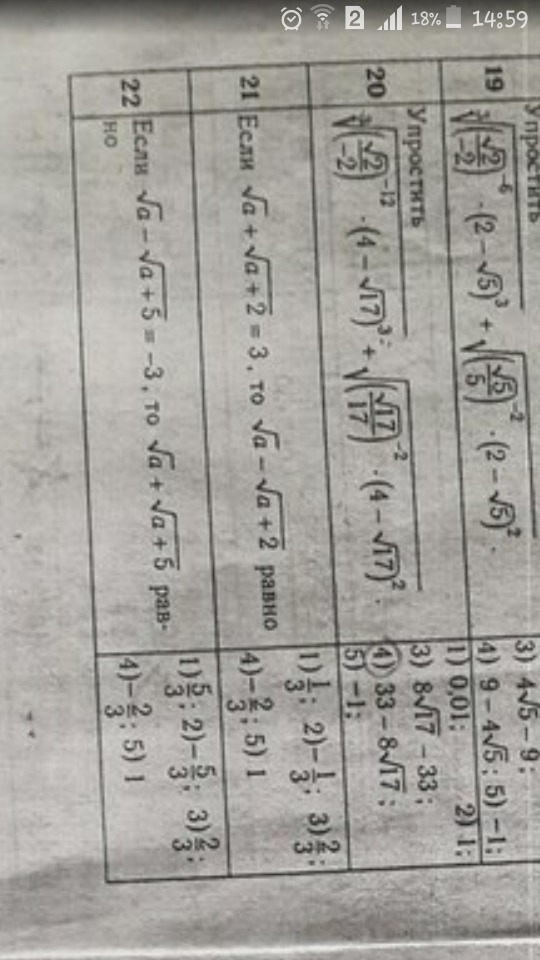 2 18% 14:59
19 Упростить
∛((√2/-2)^-6 · (2 − √5)^3) + √((√5/5)^-2 · (2 − √5)^2).
3) 4√5 − 9;
4) 9 − 4√5; 5) −1;
20 Упростить
∛((√2/-2)^-12 · (4 − √17)^3) + √((√17/17)^-2 · (4 − √17)^2).
1) 0,01; 2) 1;
3) 8√17 − 33;
4) 33 − 8√17;
5) −1;
21 Если √a + √a + 2 = 3, то √a − √a + 2 равно
1) 1/3; 2) − 1/3; 3) 2/3;
4) − 2/3; 5) 1
22 Если √a − √a + 5 = −3, то √a + √a + 5 рав-
но
1) 5/3; 2) − 5/3; 3) 2/3;
4) − 2/3; 5) 1